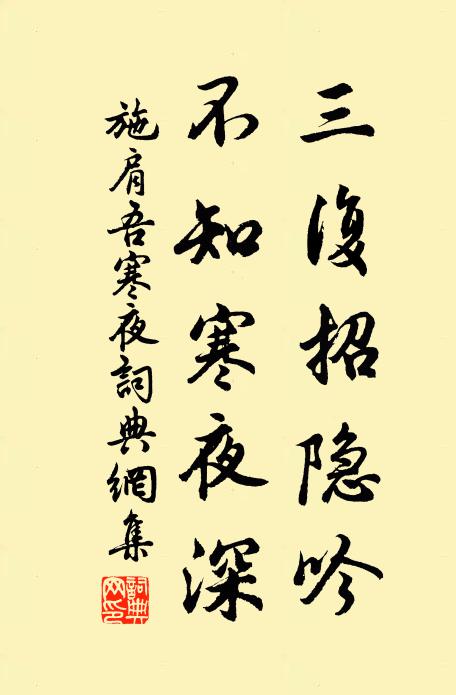 三復招隐吟
不知寒夜深
施肩吾寒夜詞典網集
詞典網印